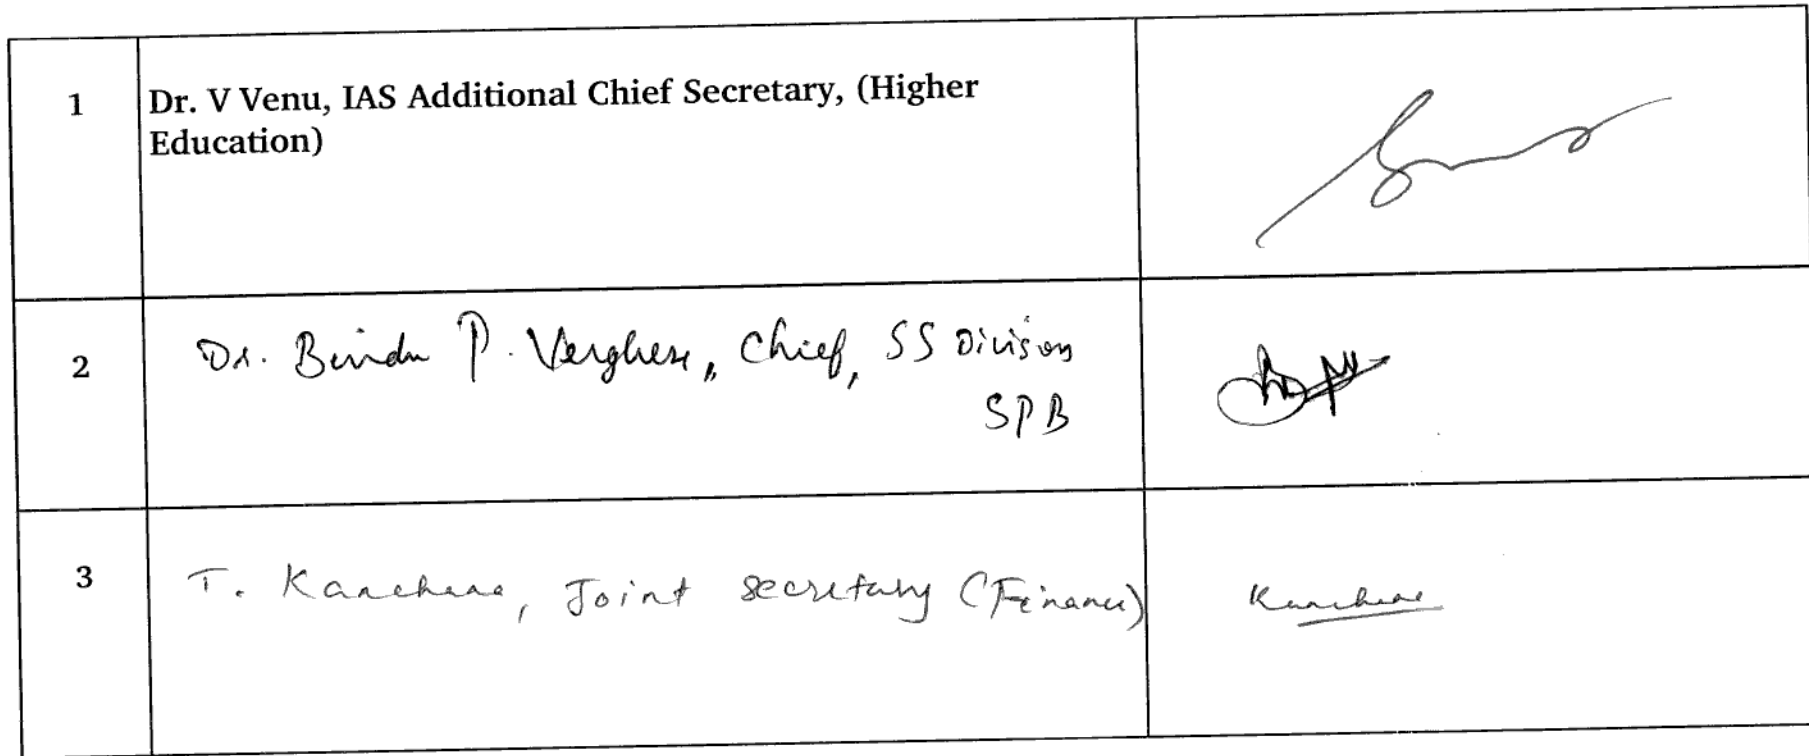 1
Dr. V Venu, IAS Additional Chief Secretary, (Higher
Education)
2
Dr. Bindu P. Verghese, Chief, SS Division
SPB
3
T. Kanchana, Joint Secretary (Finance)
Kanchana